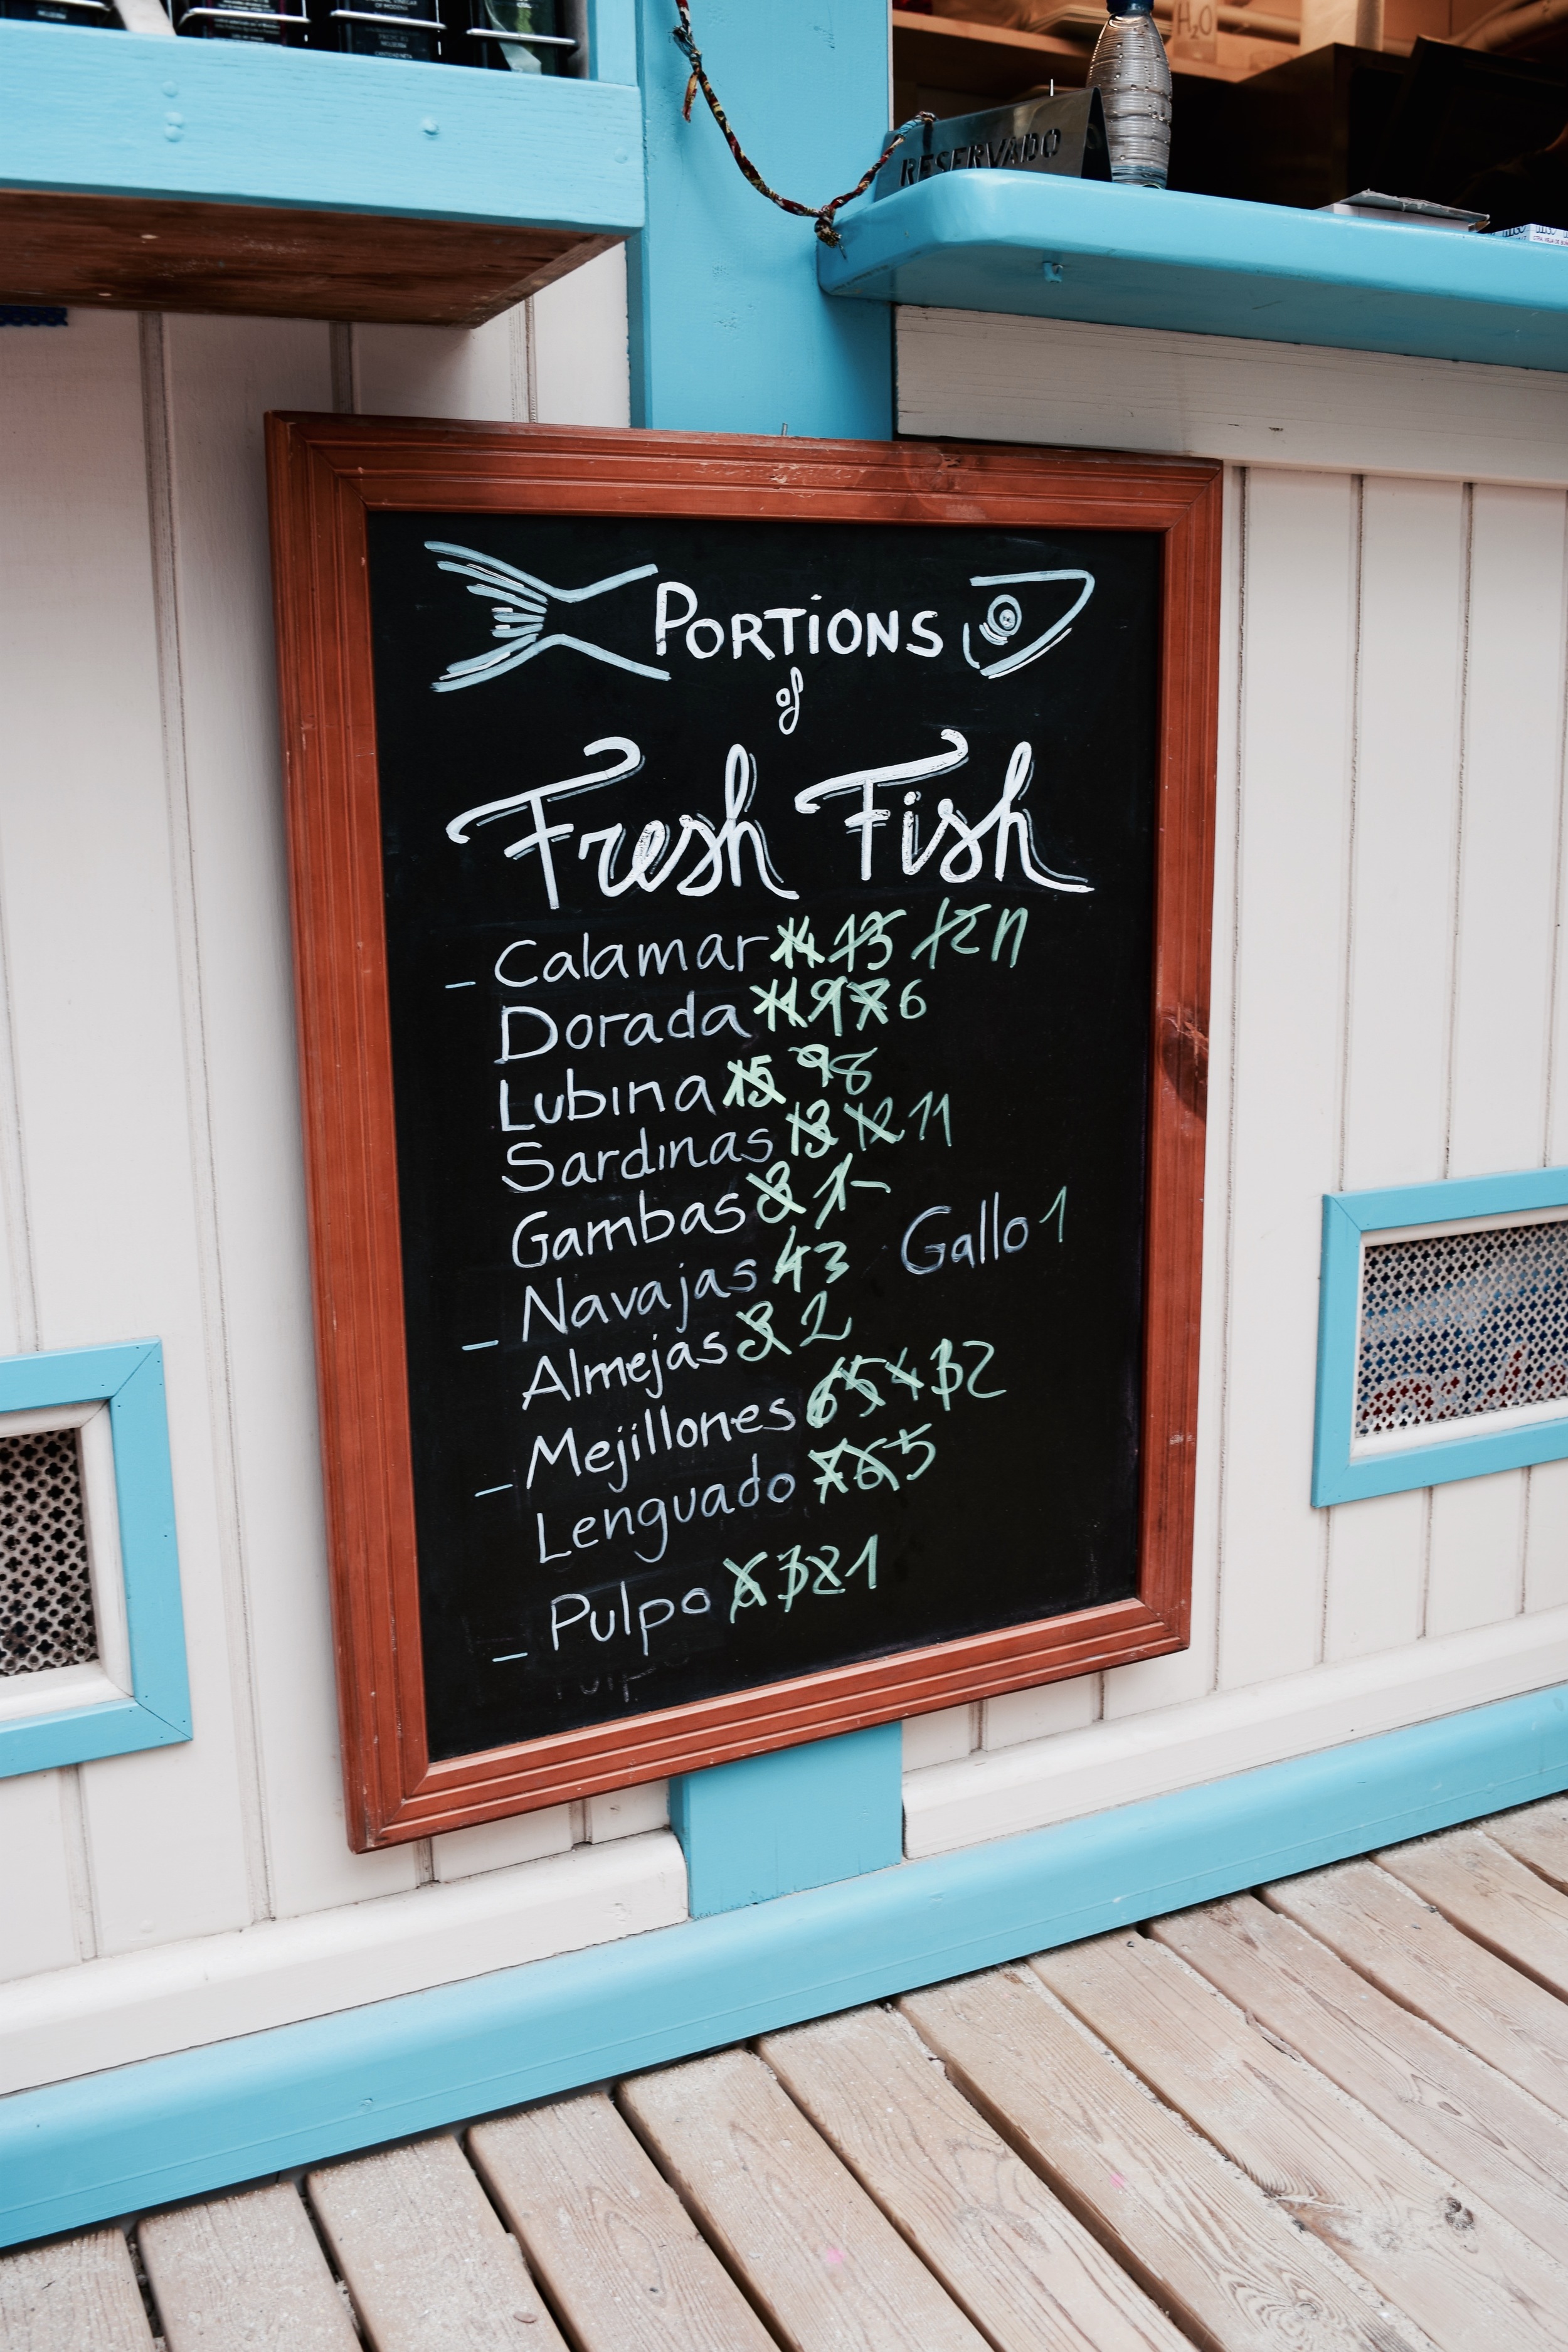 H₂O
RESERVADO
PORTIONS
of
Fresh Fish
- Calamar 14 13 12 11
Dorada 11 9 7 6
Lubina 15 9 8
Sardinas 13 12 11
Gambas 3 1 -
- Navajas 4 3 Gallo 1
Almejas 3 2
- Mejillones 6 5 4 3 2
Lenguado 7 6 5
- Pulpo 3 2 1